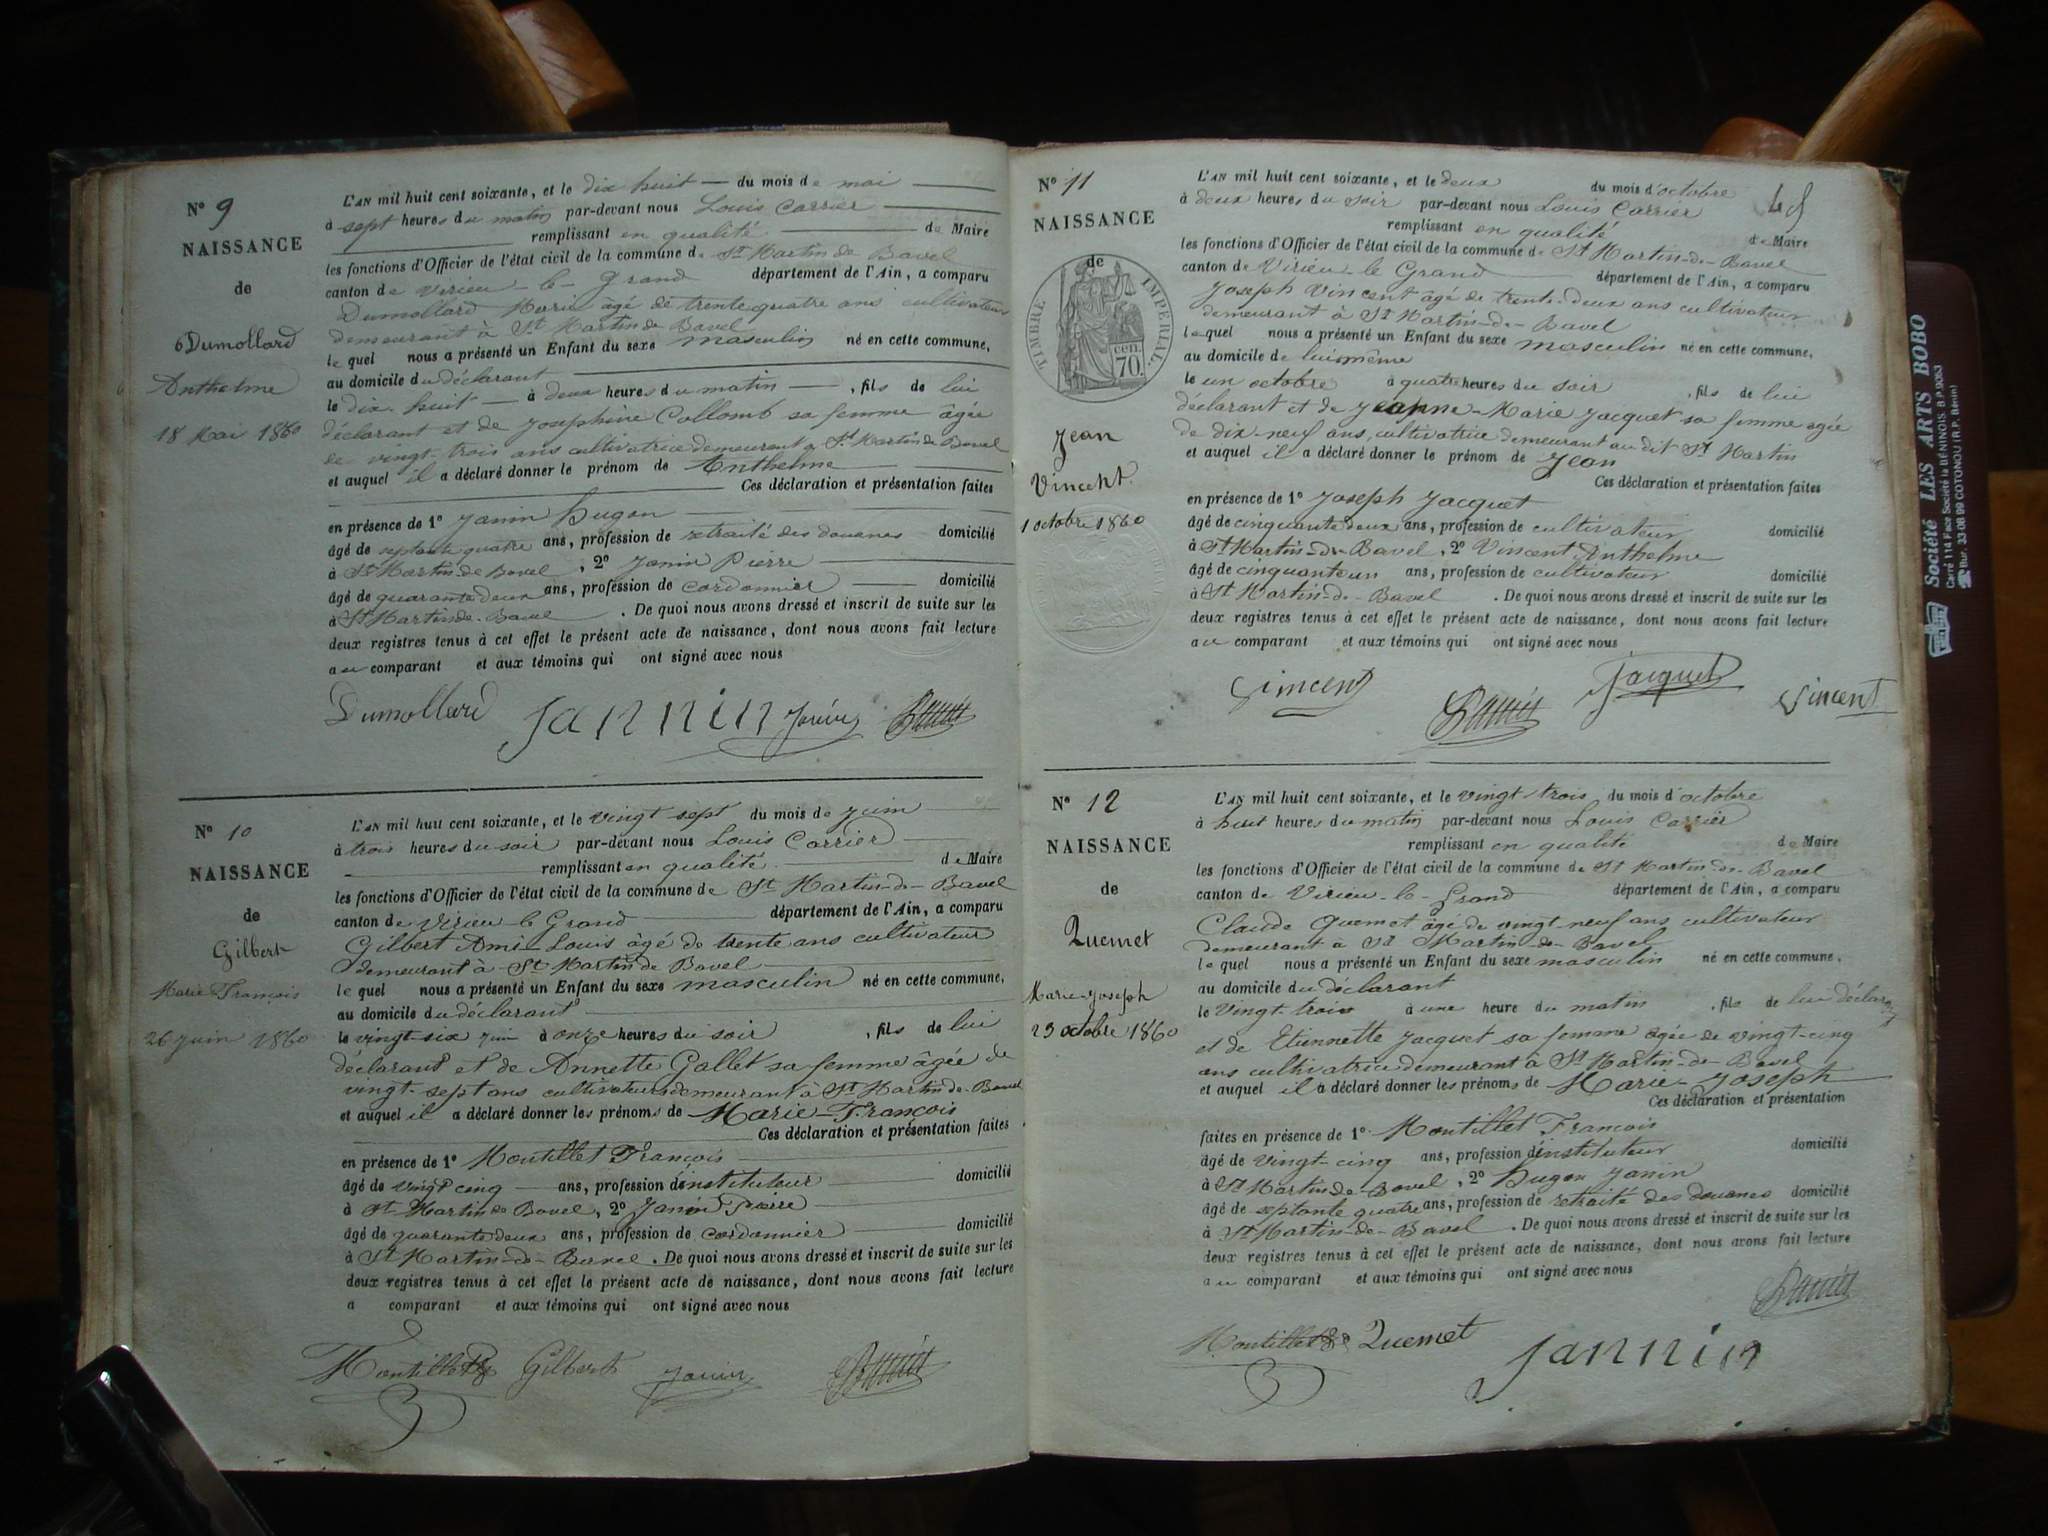 N° 9
NAISSANCE
de
Dumollard
Anthelme
18 Mai 1860
L'AN mil huit cent soixante, et le dix huit du mois de mai
à sept heures du matin par-devant nous Louis Carrier
remplissant en qualité de Maire
les fonctions d'Officier de l'état civil de la commune de St Martin de Bavel
canton de Virieu-le-Grand département de l'Ain, a comparu
Dumollard Marie âgé de trente quatre ans cultivateur
demeurant à St Martin de Bavel
lequel nous a présenté un Enfant du sexe masculin né en cette commune,
au domicile du déclarant
le dix-huit à deux heures du matin, fils de lui
déclarant et de Josephine Collomb sa femme âgée
de vingt-trois ans cultivatrice demeurant à St Martin de Bavel
et auquel il a déclaré donner le prénom de Anthelme
Ces déclaration et présentation faites
en présence de 1° Janin Hugon
âgé de septante quatre ans, profession de retraité des douanes domicilié
à St Martin-de Bavel, 2° Janin Pierre
âgé de quarante deux ans, profession de cordonnier domicilié
à St Martin-de-Bavel. De quoi nous avons dressé et inscrit de suite sur les
deux registres tenus à cet effet le présent acte de naissance, dont nous avons fait lecture
au comparant et aux témoins qui ont signé avec nous
Dumollard Jannin Janin
N° 10
NAISSANCE
de
Gilbert
Marie François
26 juin 1860
L'AN mil huit cent soixante, et le vingt sept du mois de juin
à trois heures du soir par-devant nous Louis Carrier
remplissant en qualité de Maire
les fonctions d'Officier de l'état civil de la commune de St Martin-de-Bavel
canton de Virieu-le-Grand département de l'Ain, a comparu
Gilbert Ami-Louis âgé de trente ans cultivateur
demeurant à St Martin de Bavel
lequel nous a présenté un Enfant du sexe masculin né en cette commune,
au domicile du déclarant
le vingt-six juin à onze heures du soir, fils de lui
déclarant et de Annette Gallet sa femme âgée de
vingt-sept ans cultivateurs demeurant à St Martin-de-Bavel
et auquel il a déclaré donner les prénoms de Marie-François
Ces déclaration et présentation faites
en présence de 1° Montillet François
âgé de vingt cinq ans, profession d'instituteur domicilié
à St Martin de Bavel, 2° Janin Pierre
âgé de quarante deux ans, profession de cordonnier domicilié
à St Martin-de-Bavel. De quoi nous avons dressé et inscrit de suite sur les
deux registres tenus à cet effet le présent acte de naissance, dont nous avons fait lecture
a comparant et aux témoins qui ont signé avec nous
Montillet Gilbert Janin
48
N° 11
NAISSANCE
de
TIMBRE IMPERIAL
70 cen.
Jean
Vincent
1 octobre 1860
L'AN mil huit cent soixante, et le deux du mois d'octobre
à deux heures du soir par-devant nous Louis Carrier
remplissant en qualité de Maire
les fonctions d'Officier de l'état civil de la commune de St Martin-de-Bavel
canton de Virieu-le Grand département de l'Ain, a comparu
Joseph Vincent âgé de trente-deux ans cultivateur
demeurant à St Martin-de-Bavel
lequel nous a présenté un Enfant du sexe masculin né en cette commune,
au domicile de lui même
le un octobre à quatre heures du soir, fils de lui
déclarant et de Jeanne-Marie Jacquet sa femme agée
de dix-neuf ans, cultivatrice demeurant au dit St Martin
et auquel il a déclaré donner le prénom de Jean
Ces déclaration et présentation faites
en présence de 1° Joseph Jacquet
âgé de cinquante deux ans, profession de cultivateur domicilié
à St Martin-de-Bavel, 2° Vincent Anthelme
âgé de cinquante un ans, profession de cultivateur domicilié
à St Martin-de-Bavel. De quoi nous avons dressé et inscrit de suite sur les
deux registres tenus à cet effet le présent acte de naissance, dont nous avons fait lecture
au comparant et aux témoins qui ont signé avec nous
Vincent Jacquet Vincent
N° 12
NAISSANCE
de
Quemet
Marie Joseph
23 octobre 1860
L'AN mil huit cent soixante, et le vingt trois du mois d'octobre
à huit heures du matin par-devant nous Louis Carrier
remplissant en qualité de Maire
les fonctions d'Officier de l'état civil de la commune de St Martin-de-Bavel
canton de Virieu-le-Grand département de l'Ain, a comparu
Claude Quemet âgé de vingt-neuf ans cultivateur
demeurant à St Martin-de-Bavel
lequel nous a présenté un Enfant du sexe masculin né en cette commune,
au domicile du déclarant
le vingt trois à une heure du matin, fils de lui déclarant
et de Etiennette Jacquet sa femme agée de vingt-cinq
ans cultivatrice demeurant à St Martin-de-Bavel
et auquel il a déclaré donner les prénoms de Marie-Joseph
Ces déclaration et présentation
faites en présence de 1° Montillet François
âgé de vingt-cinq ans, profession d'instituteur domicilié
à St Martin de-Bavel, 2° Hugon Janin
âgé de septante quatre ans, profession de retraité des douanes domicilié
à St Martin-de-Bavel. De quoi nous avons dressé et inscrit de suite sur les
deux registres tenus à cet effet le présent acte de naissance, dont nous avons fait lecture
au comparant et aux témoins qui ont signé avec nous
Montillet Quemet Jannin
Société LES ARTS BOBO
Carré 114 Face Société la BÉNINOIS. B.P. 9053
☎ Bur. 33-08 99 COTONOU (R.P. Bénin)